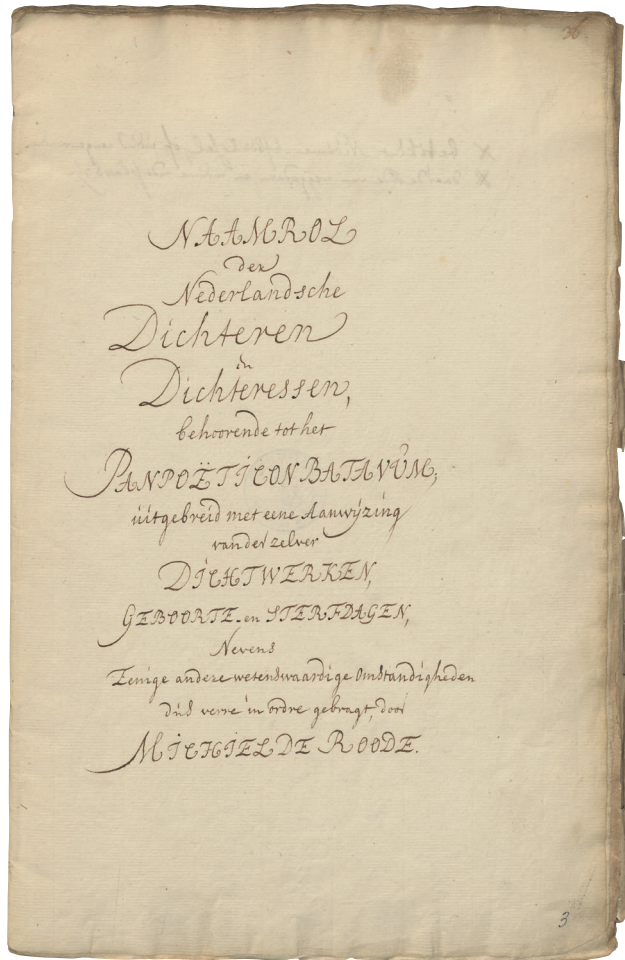 36.
NAAMROL
der
Nederlandsche
Dichteren
en
Dichteressen,
behoorende tot het
PANPOËTICON BATAVŬM;
uitgebreid met eene Aanwyzing
van derzelver
DICHTWERKEN,
GEBOORTE- en STERFDAGEN,
Nevens
Eenige andere wetenswaardige Omstandigheden
dus verre in ordre gebragt, door
MICHIEL DE ROODE.
3